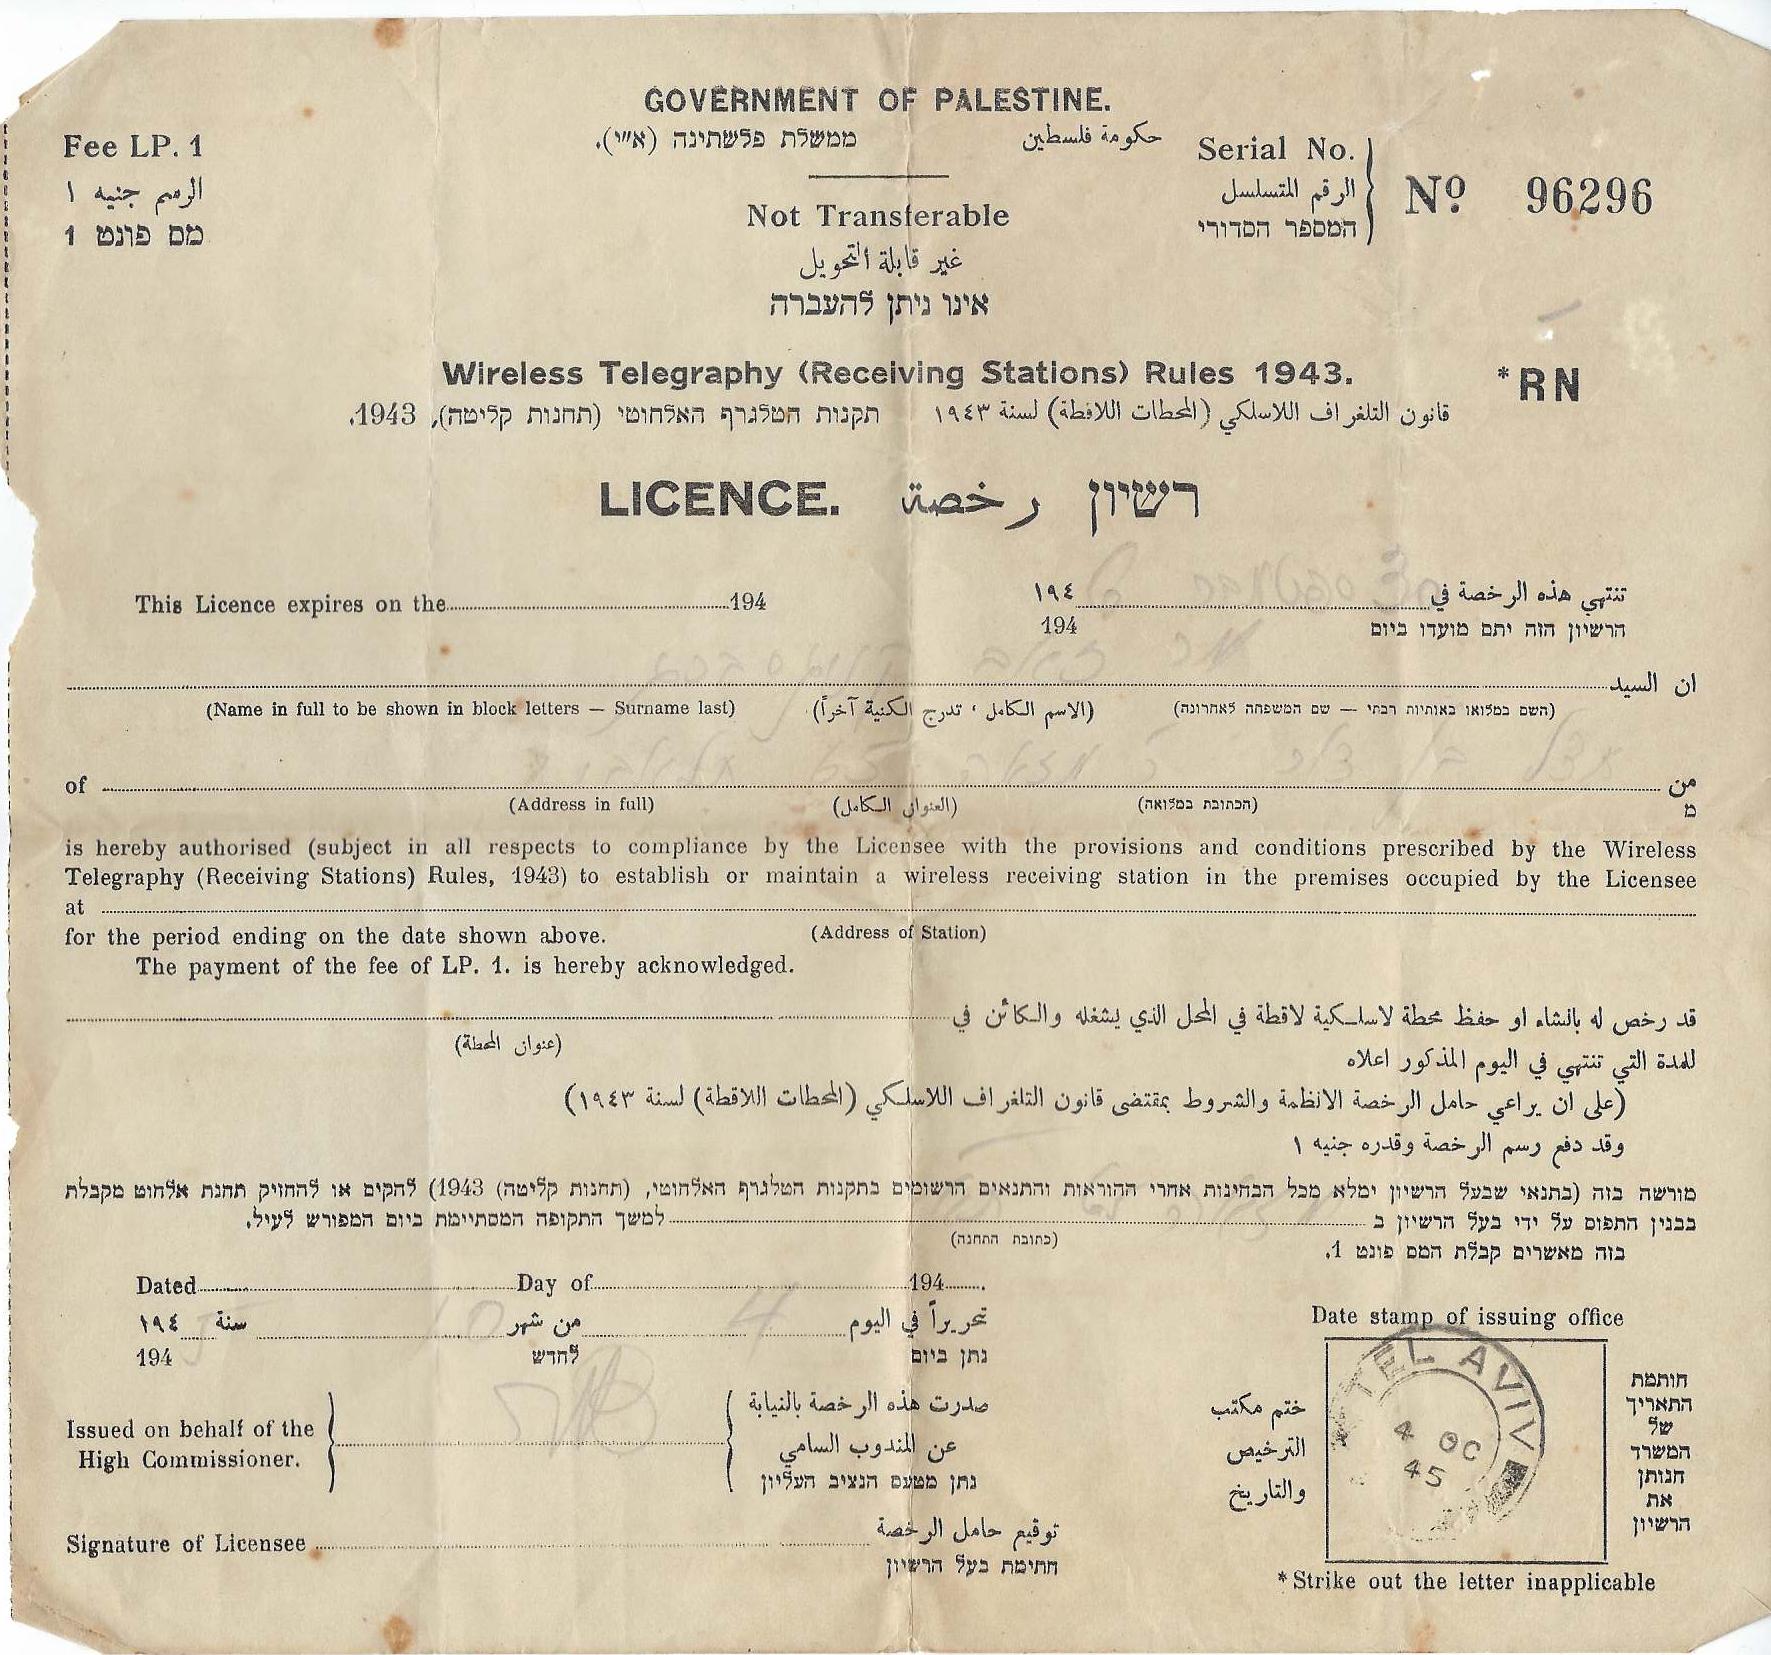 GOVERNMENT OF PALESTINE.
ממשלת פלשתינה (א״י). حكومة فلسطين
Fee LP. 1
الرسم جنيه ١
מס פונט 1
Serial No.
الرقم المتسلسل
המספר הסדורי
Nº 96296
Not Transferable
غير قابلة التحويل
אינו ניתן להעברה
Wireless Telegraphy (Receiving Stations) Rules 1943.
*RN
قانون التلغراف اللاسلكي (المحطات اللاقطة) لسنة ١٩٤٣ תקנות הטלגרף האלחוטי (תחנות קליטה), 1943.
LICENCE. رخصة רשיון
This Licence expires on the 194
تنتهي هذه الرخصة في ١٩٤
הרשיון הזה יתם מועדו ביום 194
ان السيد
(Name in full to be shown in block letters — Surname last) (الاسم الكامل، تدرج الكنية آخراً) (השם במלואו באותיות רבתי — שם המשפחה לאחרונה)
of من
מ
(Address in full) (العنوان الكامل) (הכתובת במלואה)
is hereby authorised (subject in all respects to compliance by the Licensee with the provisions and conditions prescribed by the Wireless
Telegraphy (Receiving Stations) Rules, 1943) to establish or maintain a wireless receiving station in the premises occupied by the Licensee
at
for the period ending on the date shown above. (Address of Station)
The payment of the fee of LP. 1. is hereby acknowledged.
قد رخص له بانشاء او حفظ محطة لاسلكية لاقطة في المحل الذي يشغله والكائن في
(عنوان المحطة)
للمدة التي تنتهي في اليوم المذكور اعلاه
(على ان يراعي حامل الرخصة الانظمة والشروط بمقتضى قانون التلغراف اللاسلكي (المحطات اللاقطة) لسنة ١٩٤٣)
وقد دفع رسم الرخصة وقدره جنيه ١
מורשה בזה (בתנאי שבעל הרשיון ימלא מכל הבחינות אחרי ההוראות והתנאים הרשומים בתקנות הטלגרף האלחוטי, (תחנות קליטה) 1943) להקים או להחזיק תחנת אלחוט מקבלת
בבנין התפוס על ידי בעל הרשיון ב למשך התקופה המסתיימת ביום המפורש לעיל.
(כתובת התחנה)
בזה מאשרים קבלת המס פונט 1.
Dated Day of 194 .
تحريراً في اليوم 4 من شهر 10 سنة ١٩٤ 5
נתן ביום לחדש 194
Issued on behalf of the
High Commissioner.
صدرت هذه الرخصة بالنيابة
عن المندوب السامي
נתן מטעם הנציב העליון
Signature of Licensee توقيع حامل الرخصة
חתימת בעל הרשיון
Date stamp of issuing office
ختم مكتب
الترخيص
والتاريخ
TEL AVIV
4 OC
45
חותמת
התאריך
של
המשרד
הנותן
את
הרשיון
*Strike out the letter inapplicable